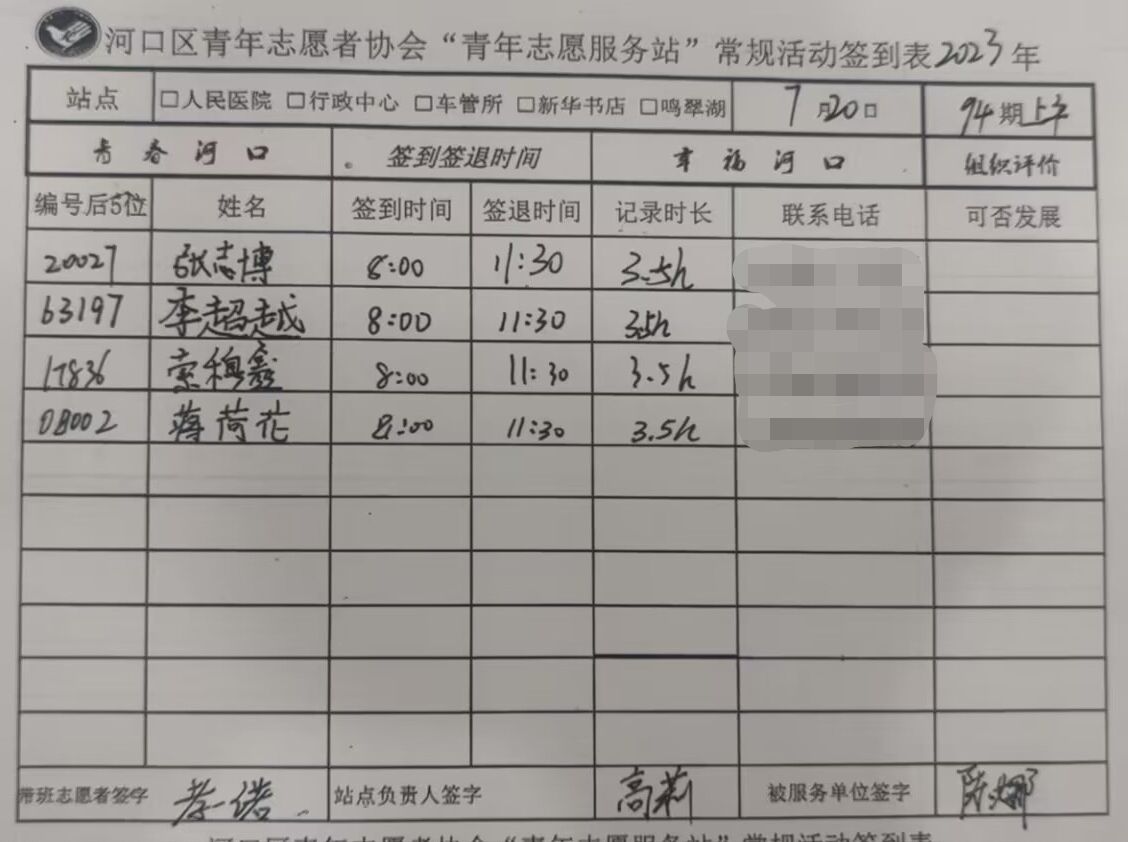 河口区青年志愿者协会“青年志愿服务站”常规活动签到表2023年
站点 □人民医院 □行政中心 □车管所 □新华书店 □鸣翠湖 7月20日 94期上午
青春河口 签到签退时间 幸福河口 组织评价
编号后5位 姓名 签到时间 签退时间 记录时长 联系电话 可否发展
20027 张志博 8:00 11:30 3.5h
63197 李超越 8:00 11:30 3.5h
17836 索穆鑫 8:00 11:30 3.5h
08002 蒋荷花 8:00 11:30 3.5h
带班志愿者签字 站点负责人签字 高莉 被服务单位签字
河口区青年志愿者协会“青年志愿服务站”常规活动签到表